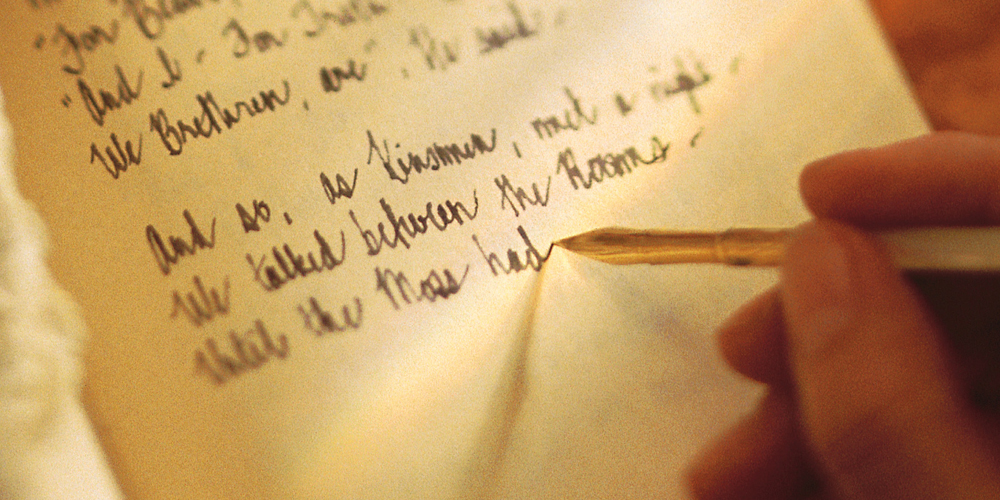 "For Beauty
"And I - For Truth
We Brethren, are", He said -
And so, as Kinsmen, met a night -
We talked between the Rooms -
Until the Moss had